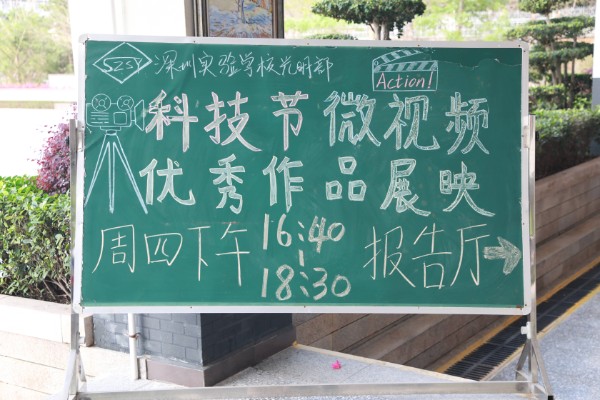 SZSY 深圳实验学校光明部
Action!
科技节微视频
优秀作品展映
周四下午 16:40-18:30 报告厅